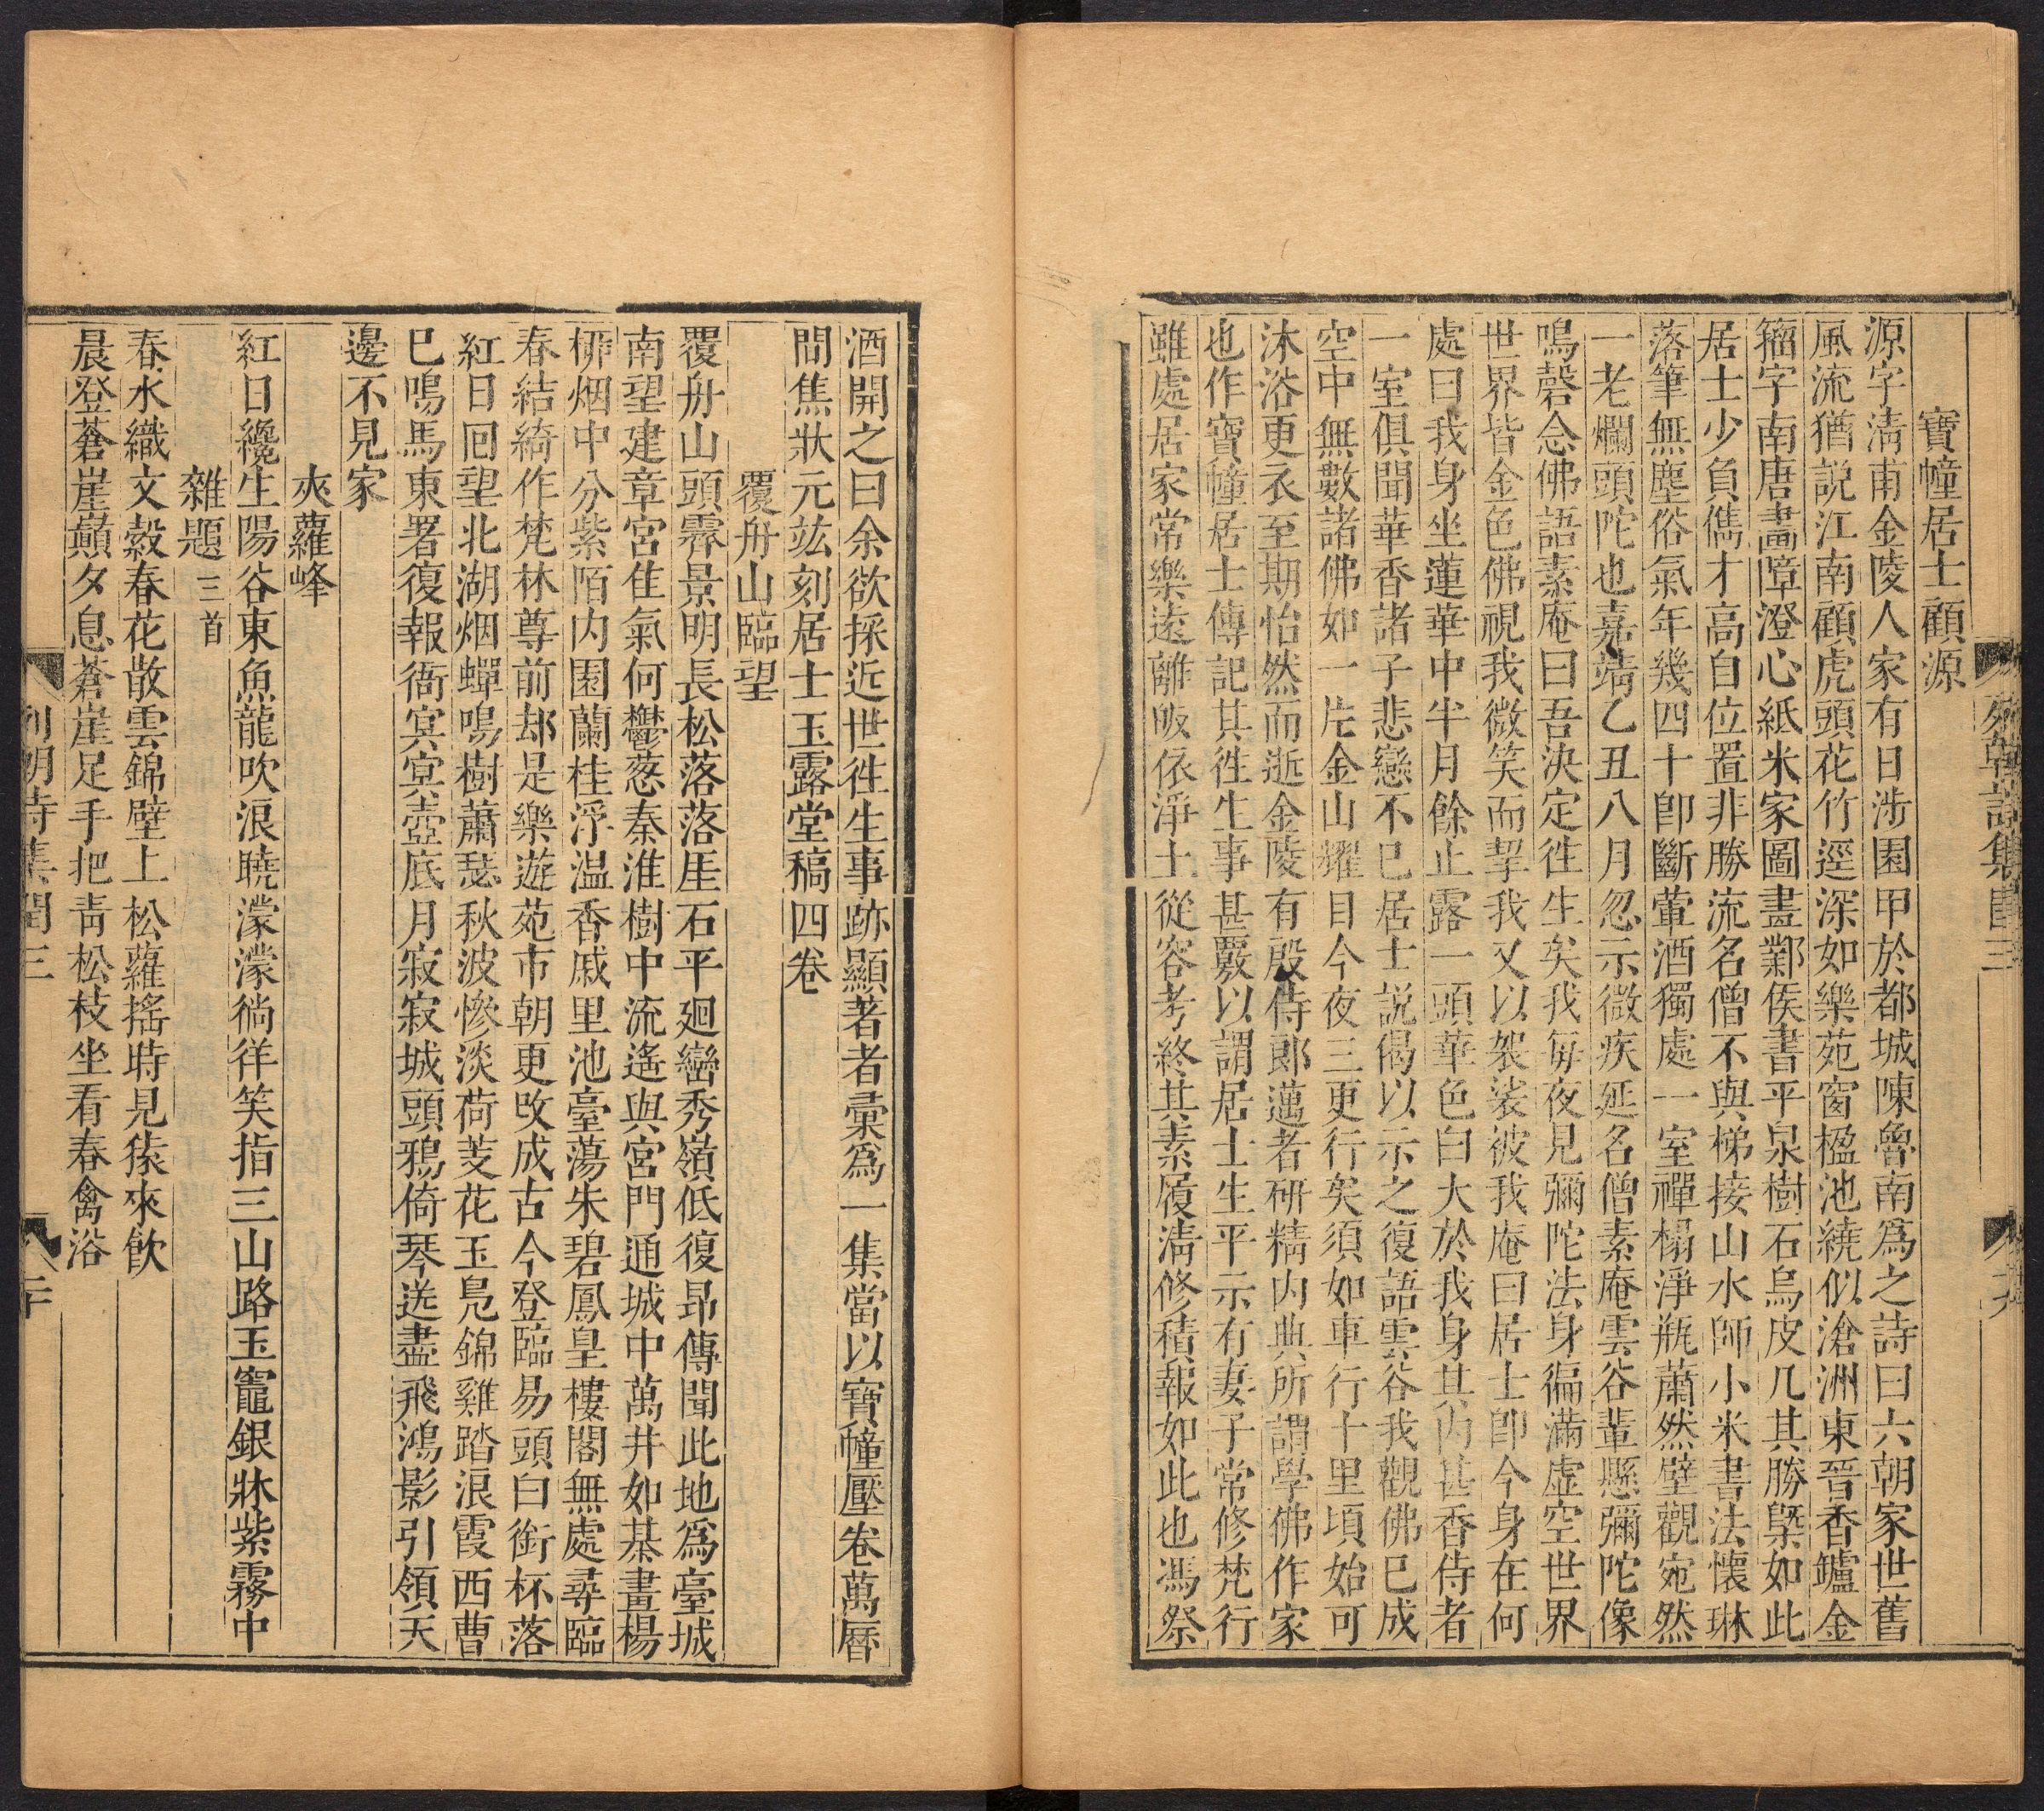 列朝詩集閏三
十九
寶幢居士顧源
源字淸甫金陵人家有日涉園甲於都城陳魯南爲之詩曰六朝家世舊
風流猶説江南顧虎頭花竹逕深如樂苑窗楹池繞似滄洲東晉香罏金
籀字南唐畵障澄心紙米家圖畫鄴侯書平泉樹石烏皮几其勝槩如此
居士少負儁才高自位置非勝流名僧不與梯接山水師小米書法懷琳
落筆無塵俗氣年幾四十卽斷葷酒獨處一室禪榻淨瓶蕭然壁觀宛然
一老爛頭陀也嘉靖乙丑八月忽示微疾延名僧素庵雲谷輩懸彌陀像
鳴磬念佛語素庵曰吾決定徃生矣我每夜見彌陀法身徧滿虛空世界
世界皆金色佛視我微笑而挈我又以袈裟被我庵曰居士卽今身在何
處曰我身坐蓮華中半月餘止露一頭華色白大於我身其內甚香侍者
一室俱聞華香諸子悲戀不已居士説偈以示之復語雲谷我觀佛巳成
空中無數諸佛如一片金山耀目今夜三更行矣須如車行十里頃始可
沐浴更衣至期怡然而逝金陵有殷侍郎邁者研精內典所謂學佛作家
也作寶幢居士傳記其徃生事甚覈以謂居士生平示有妻子常修梵行
雖處居家常樂遠離皈依淨土從容考終其素履淸修積報如此也馮祭
酒開之曰余欲採近世徃生事跡顯著者彙爲一集當以寶幢壓卷萬曆
間焦狀元竑刻居士玉露堂稿四卷
覆舟山臨望
覆舟山頭霽景明長松落落厓石平廻巒秀嶺低復昂傳聞此地爲臺城
南望建章宮佳氣何鬱葱秦淮樹中流遙與宮門通城中萬井如棊畫楊
柳烟中分紫陌内園蘭桂浮温香戚里池臺蕩朱碧鳳皇樓閣無處尋臨
春結綺作梵林尊前却是樂遊苑市朝更攺成古今登臨易頭白銜杯落
紅日囘望北湖烟蟬鳴樹蕭瑟秋波慘淡荷芰花玉鳧錦雞踏浪霞西曹
巳鳴馬東署復報衙㝠㝠壺底月寂寂城頭鴉倚琴送盡飛鴻影引領天
邊不見家
夾蘿峰
紅日纔生陽谷東魚龍吹浪曉濛濛徜徉笑指三山路玉竈銀牀紫霧中
雜題三首
春水織文縠春花散雲錦壁上松蘿搖時見猿來飮
晨登蒼崖巔夕息蒼崖足手把靑松枝坐看春禽浴
列朝詩集閏三
二十